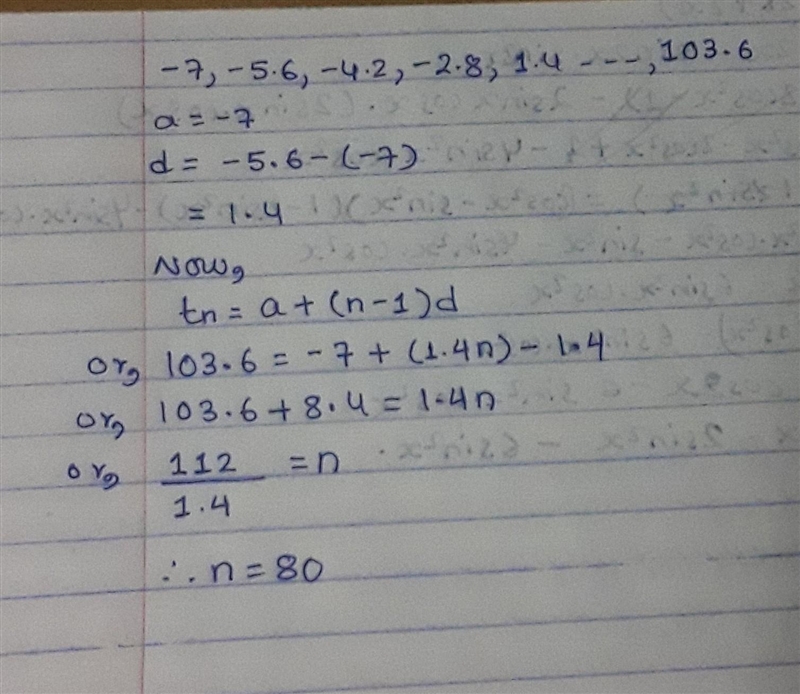 -7, -5.6, -4.2, -2.8, 1.4 ---, 103.6
a = -7
d = -5.6 - (-7)
= 1.4
Now,
tn = a + (n-1)d
or, 103.6 = -7 + (1.4n) - 1.4
or, 103.6 + 8.4 = 1.4n
or, 112/1.4 = n
∴ n = 80